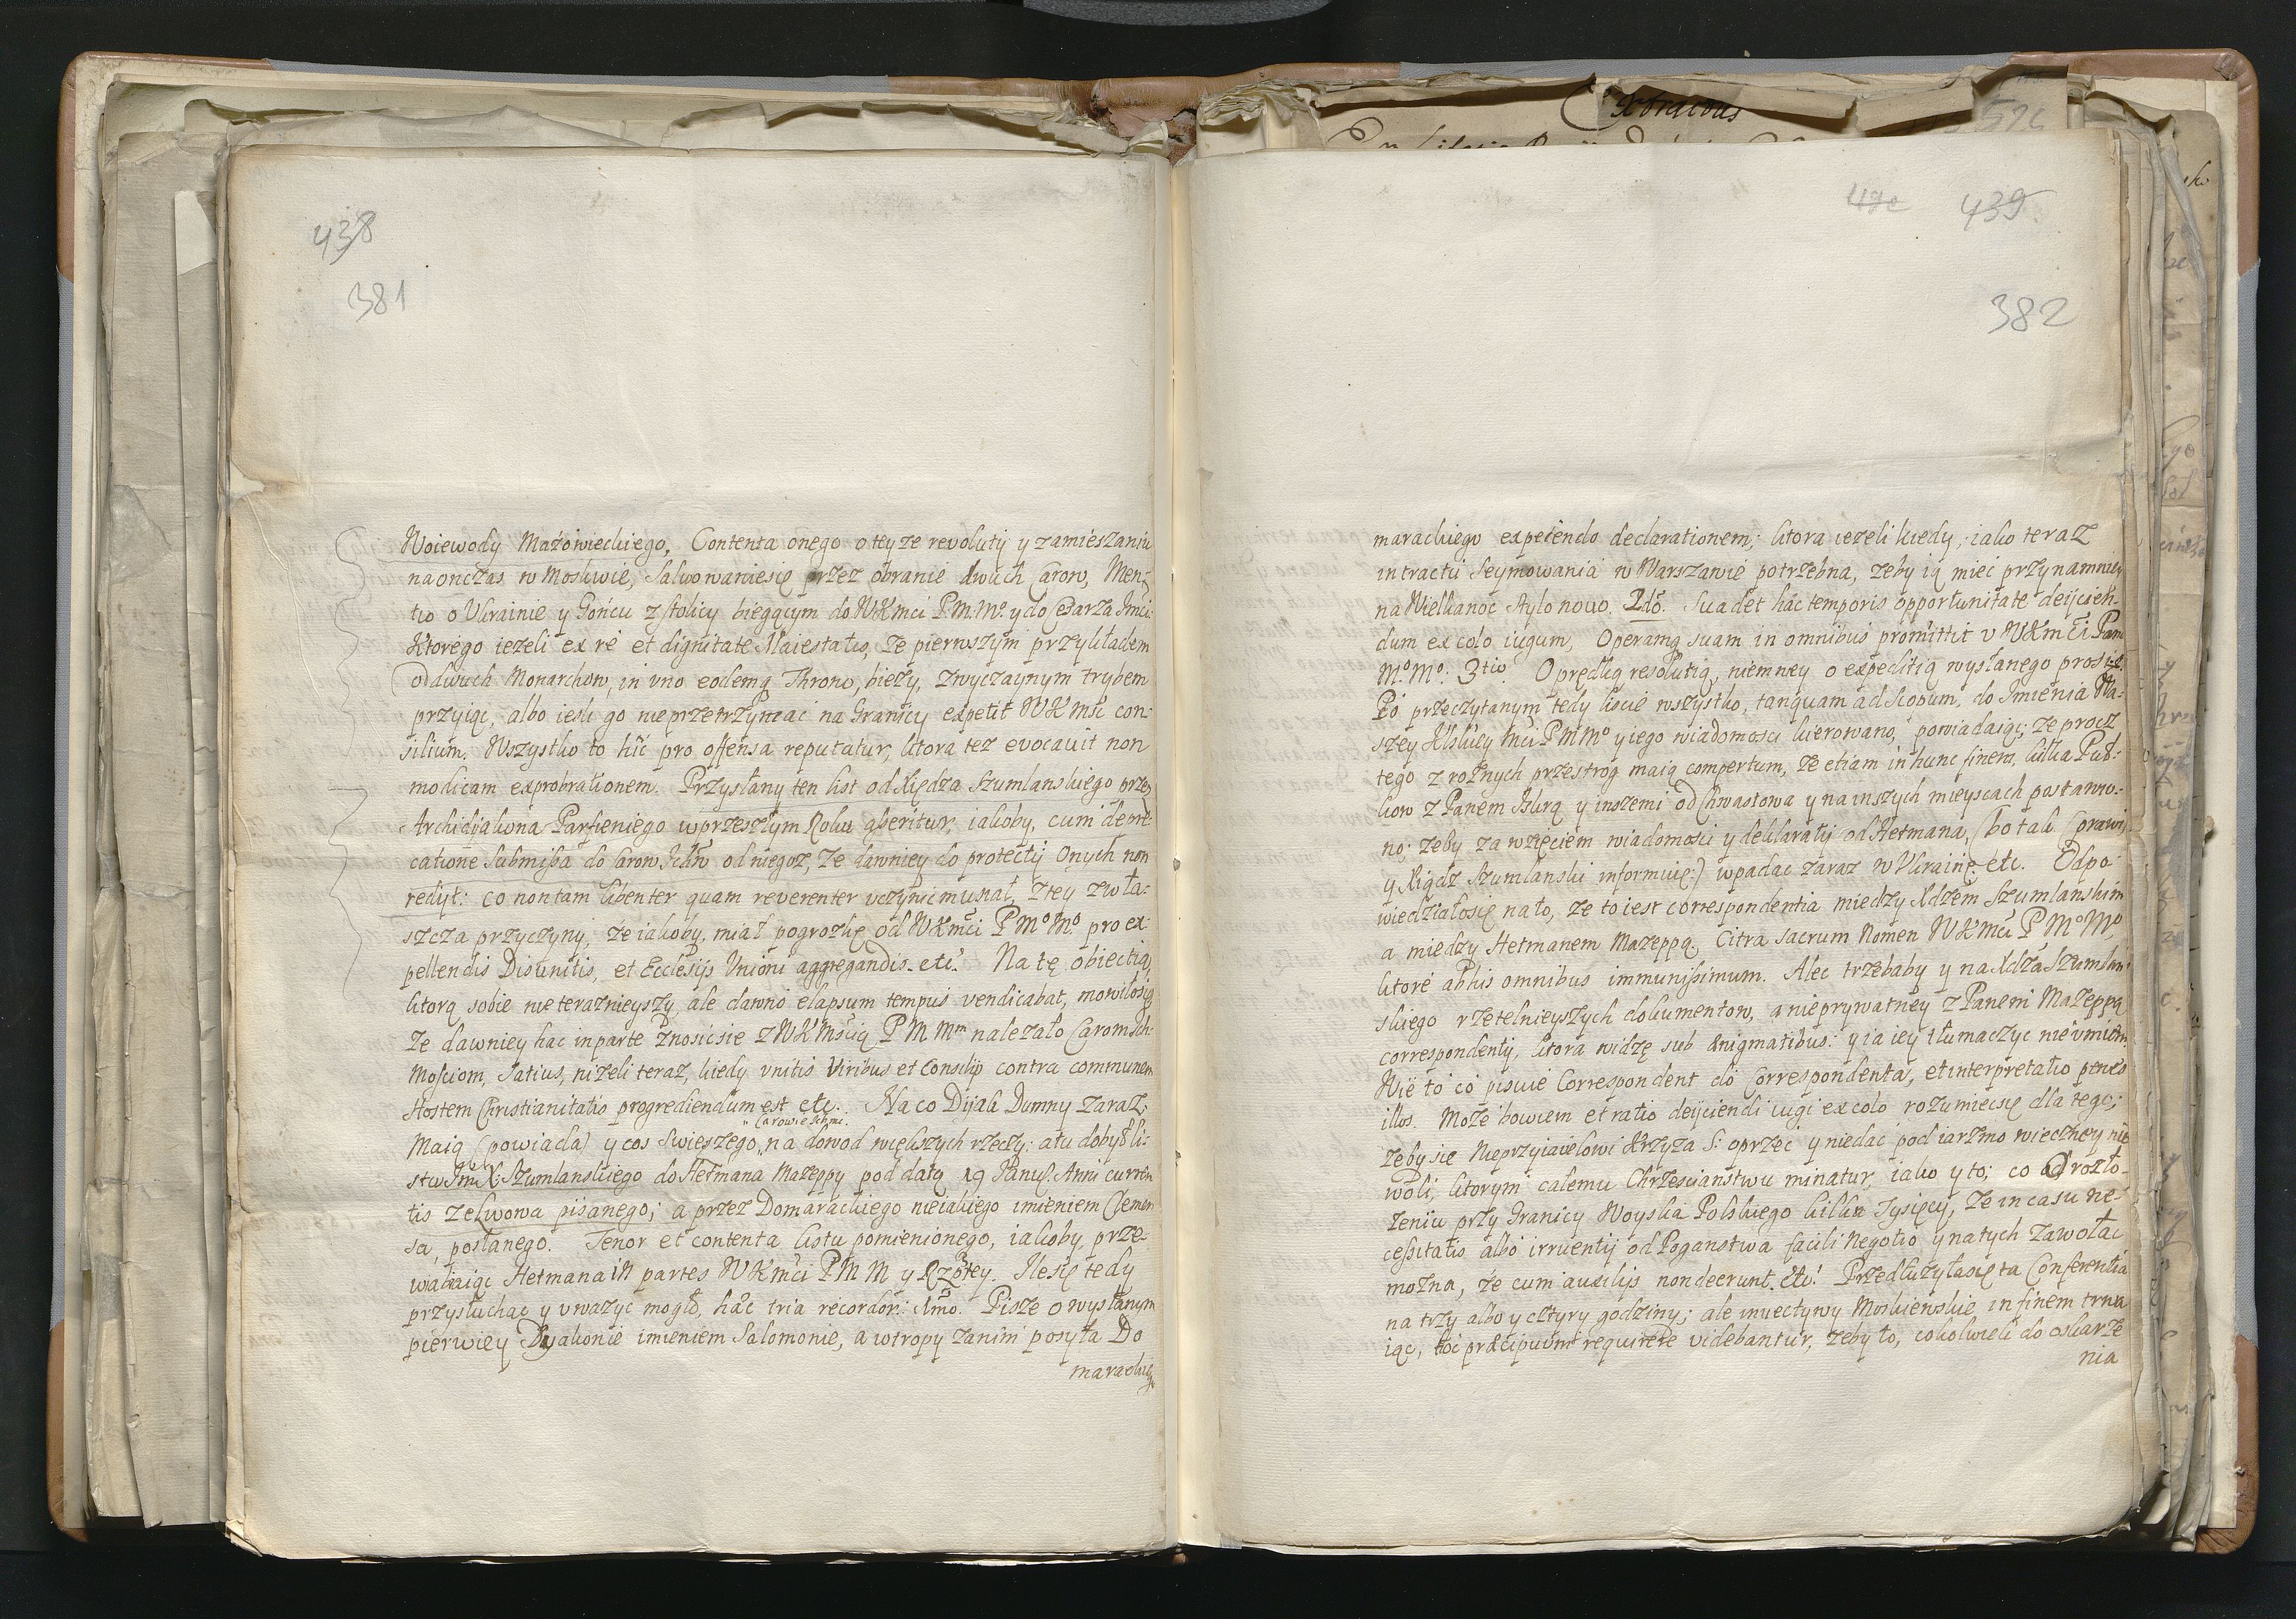 438
381
Woiewody Mazowieckiego, Contenta onego o teyze revolutÿ y zamieszaniu
na onczas w Moskwie, Salwowaniesię przez obranie dwuch Carow, Men-
tio o Ukrainie y Gońcu z stolicy bieżącym do WKmći P.M.Mº. y do Cesarza Imći
Ktorego iezeli ex re et dignitate Maiestatis, ze pierwszym przykładem
od dwuch Monarchow, in uno eodemq Throno, bieży, zwyczaynym trybem
przyiąc, albo iesli go nieprzetrzymac na Granicy expetit WKMśc con-
silium. Wszystko to hic pro offensa reputatur, ktora tez evocavit non
modicam exprobrationem. Przysłany ten list od Xiędza Szumlanskiego przez
Archidijakona Parfieniego w przeszłym Roku asseritur, iakoby, cum depre-
catione submissa do Carow Ichm od niegoz, ze dawniey do protectÿ Onych non
redijt: co non tam libenter quam reverenter uczynic musiał, z tey zwła-
szcza przyczyny, że iakoby miał pogrozkę od WKmći P Mº Mº pro ex-
pellendis Disunitis, et Ecclesijs Unioni aggregandis. etc. Na tę obiectią
ktorą sobie nie teraznieyszy, ale dawno elapsum tempus vendicabat, mowiłosię
ze dawniey hac in parte znosicsie z WKMścią P M Mm nalezało Carom Ich
Mościom, Satius, nizeli teraz, kiedy unitis viribus et Consilijs contra communem
Hostem Christianitatis progrediendum est etc. Na co Dijak Dumny zaraz:
" Carowie Ichmć.
Maią (powiada) y cos swieszego, na dowod większych rzeczy: a tu dobył li-
stu JmX: Szumlanskiego do Hetmana Mazeppy pod datą 19 Janu. Anni curren-
tis ze Lwowa pisanego; a przez Domarackiego nieiakiego imieniem Clemen-
sa, posłanego. Tenor et contenta listu pomienionego, iakoby prze-
wabiaiąc Hetmana in partes WKmći P M M y Rzptey. Ilesię tedy
przysłuchac y uwazyc mogło, hæc tria recordor. 1mo. Pisze o wysłanym
pierwiey Dyakonie imieniem Salomonie, a wtropy zanim posyła Do
marackie
439
382
marackiego expetendo declarationem; ktora iezeli kiedy, iako teraz
in tractu Seymowania w Warszawie potrzebna, zeby ią miec przynamniey
na Wielkanoc stylo novo. 2do. Suadet hac temporis opportunitate deijcien-
dum ex colo iugum, Operamq suam in omnibus promittit u WKmći Pana
Mº. Mº. 3tio. O prędką resolutią, niemniey o expeditią wysłanego prosi etc.
Po przeczytanym tedy liscie wszystko, tanquam ad Scopum, do Imienia Wa-
szey Klskiey Mći P M Mº y iego wiadomosci kierowano, powiadaiąc, ze procz
tego z roznych przestrog maią compertum, ze etiam in hunc finem, kilka Puł-
kow z Panem Iskrą y inszemi od Chwastowa y na inszych mieyscach postawio-
no: zeby za wzięciem wiadomosci y deklaratÿ od Hetmana, (bo tak prawi
y Xiądz Szumlanski informuie:) wpadac zaraz w Ukrainę. etc. Odpo-
wiedziałosię na to, ze to iest correspondentia miedzy Xdzem Szumlanskim
a miedzy Hetmanem Mazeppą, Citra sacrum Nomen WKmći P Mº Mº,
ktore ab his omnibus immunissimum. Alec trzebaby y na Xdza Szumlan-
skiego rzetelnieyszych dokumentow, a nieprywatney z Panem Mazeppą
correspondentÿ, ktora widzę sub ænigmatibus: y ia iey tłumaczyc nieumiem.
Wie to co pisuie Correspondent do Correspondenta, et interpretatio penes
illos. Moze bowiem et ratio deijciendi iugi ex colo rozumiecsię dla tego;
zeby się Nieprzyiacielowi Krzyza S: oprzec y niedac pod iarzmo wieczney nie
woli, ktorym całemu Chrzescianstwu minatur, iako y to; co o rozło-
zeniu przy Granicy Woyska Polskiego kilku Tysięcy, ze in casu ne-
cessitatis albo irruentÿ od Poganstwa facili Negotio y na tych zawołac
mozna, ze cum auxilijs non deerunt. etc. Przedłuzyłasię ta Conferentia
na trzy albo y cztyry godziny; ale invectywy Moskiewskie in finem trwa
iąc, hoc præcipuum requirere videbantur, zeby to, cokolwiek do oskarze
nia
Extractus